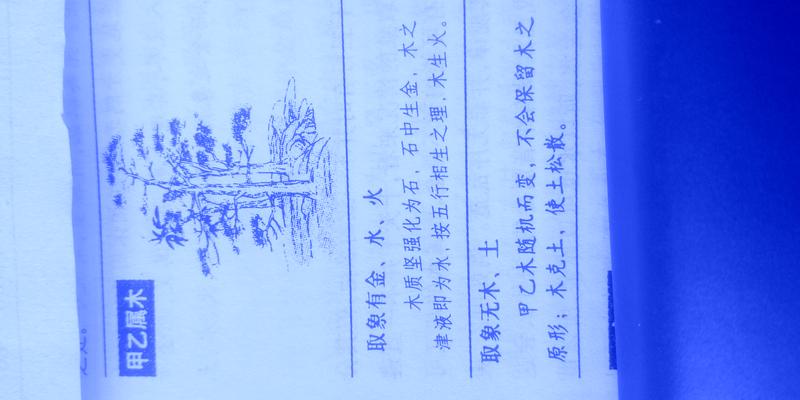 甲乙属木
取象有金、水、火
木质坚强化为石，石中生金，木之
津液即为水，按五行相生之理，木生火。
取象无木、土
甲乙木随机而变，不会保留木之
原形；木克土，使土松散。